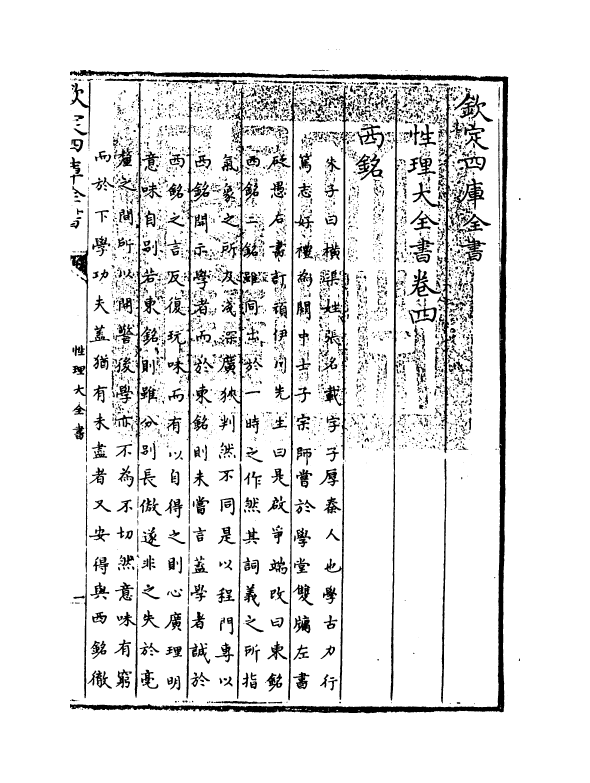 欽定四庫全書
性理大全書卷四
西銘
朱子曰橫渠姓張名載字子厚秦人也學古力行
篤志好禮為關中士子宗師嘗於學堂雙牖左書
砭愚右書訂頑伊川先生曰是啟爭端改曰東銘
西銘二銘雖同出於一時之作然其詞義之所指
氣象之所及淺深廣狹判然不同是以程門專以
西銘開示學者而於東銘則未嘗言蓋學者誠於
西銘之言反復玩味而有以自得之則心廣理明
意味自別若東銘則雖分別長傲遂非之失於毫
釐之間所以開警後學亦不為不切然意味有窮
而於下學功夫蓋猶有未盡者又安得與西銘徹
欽定四庫全書
性理大全書
一